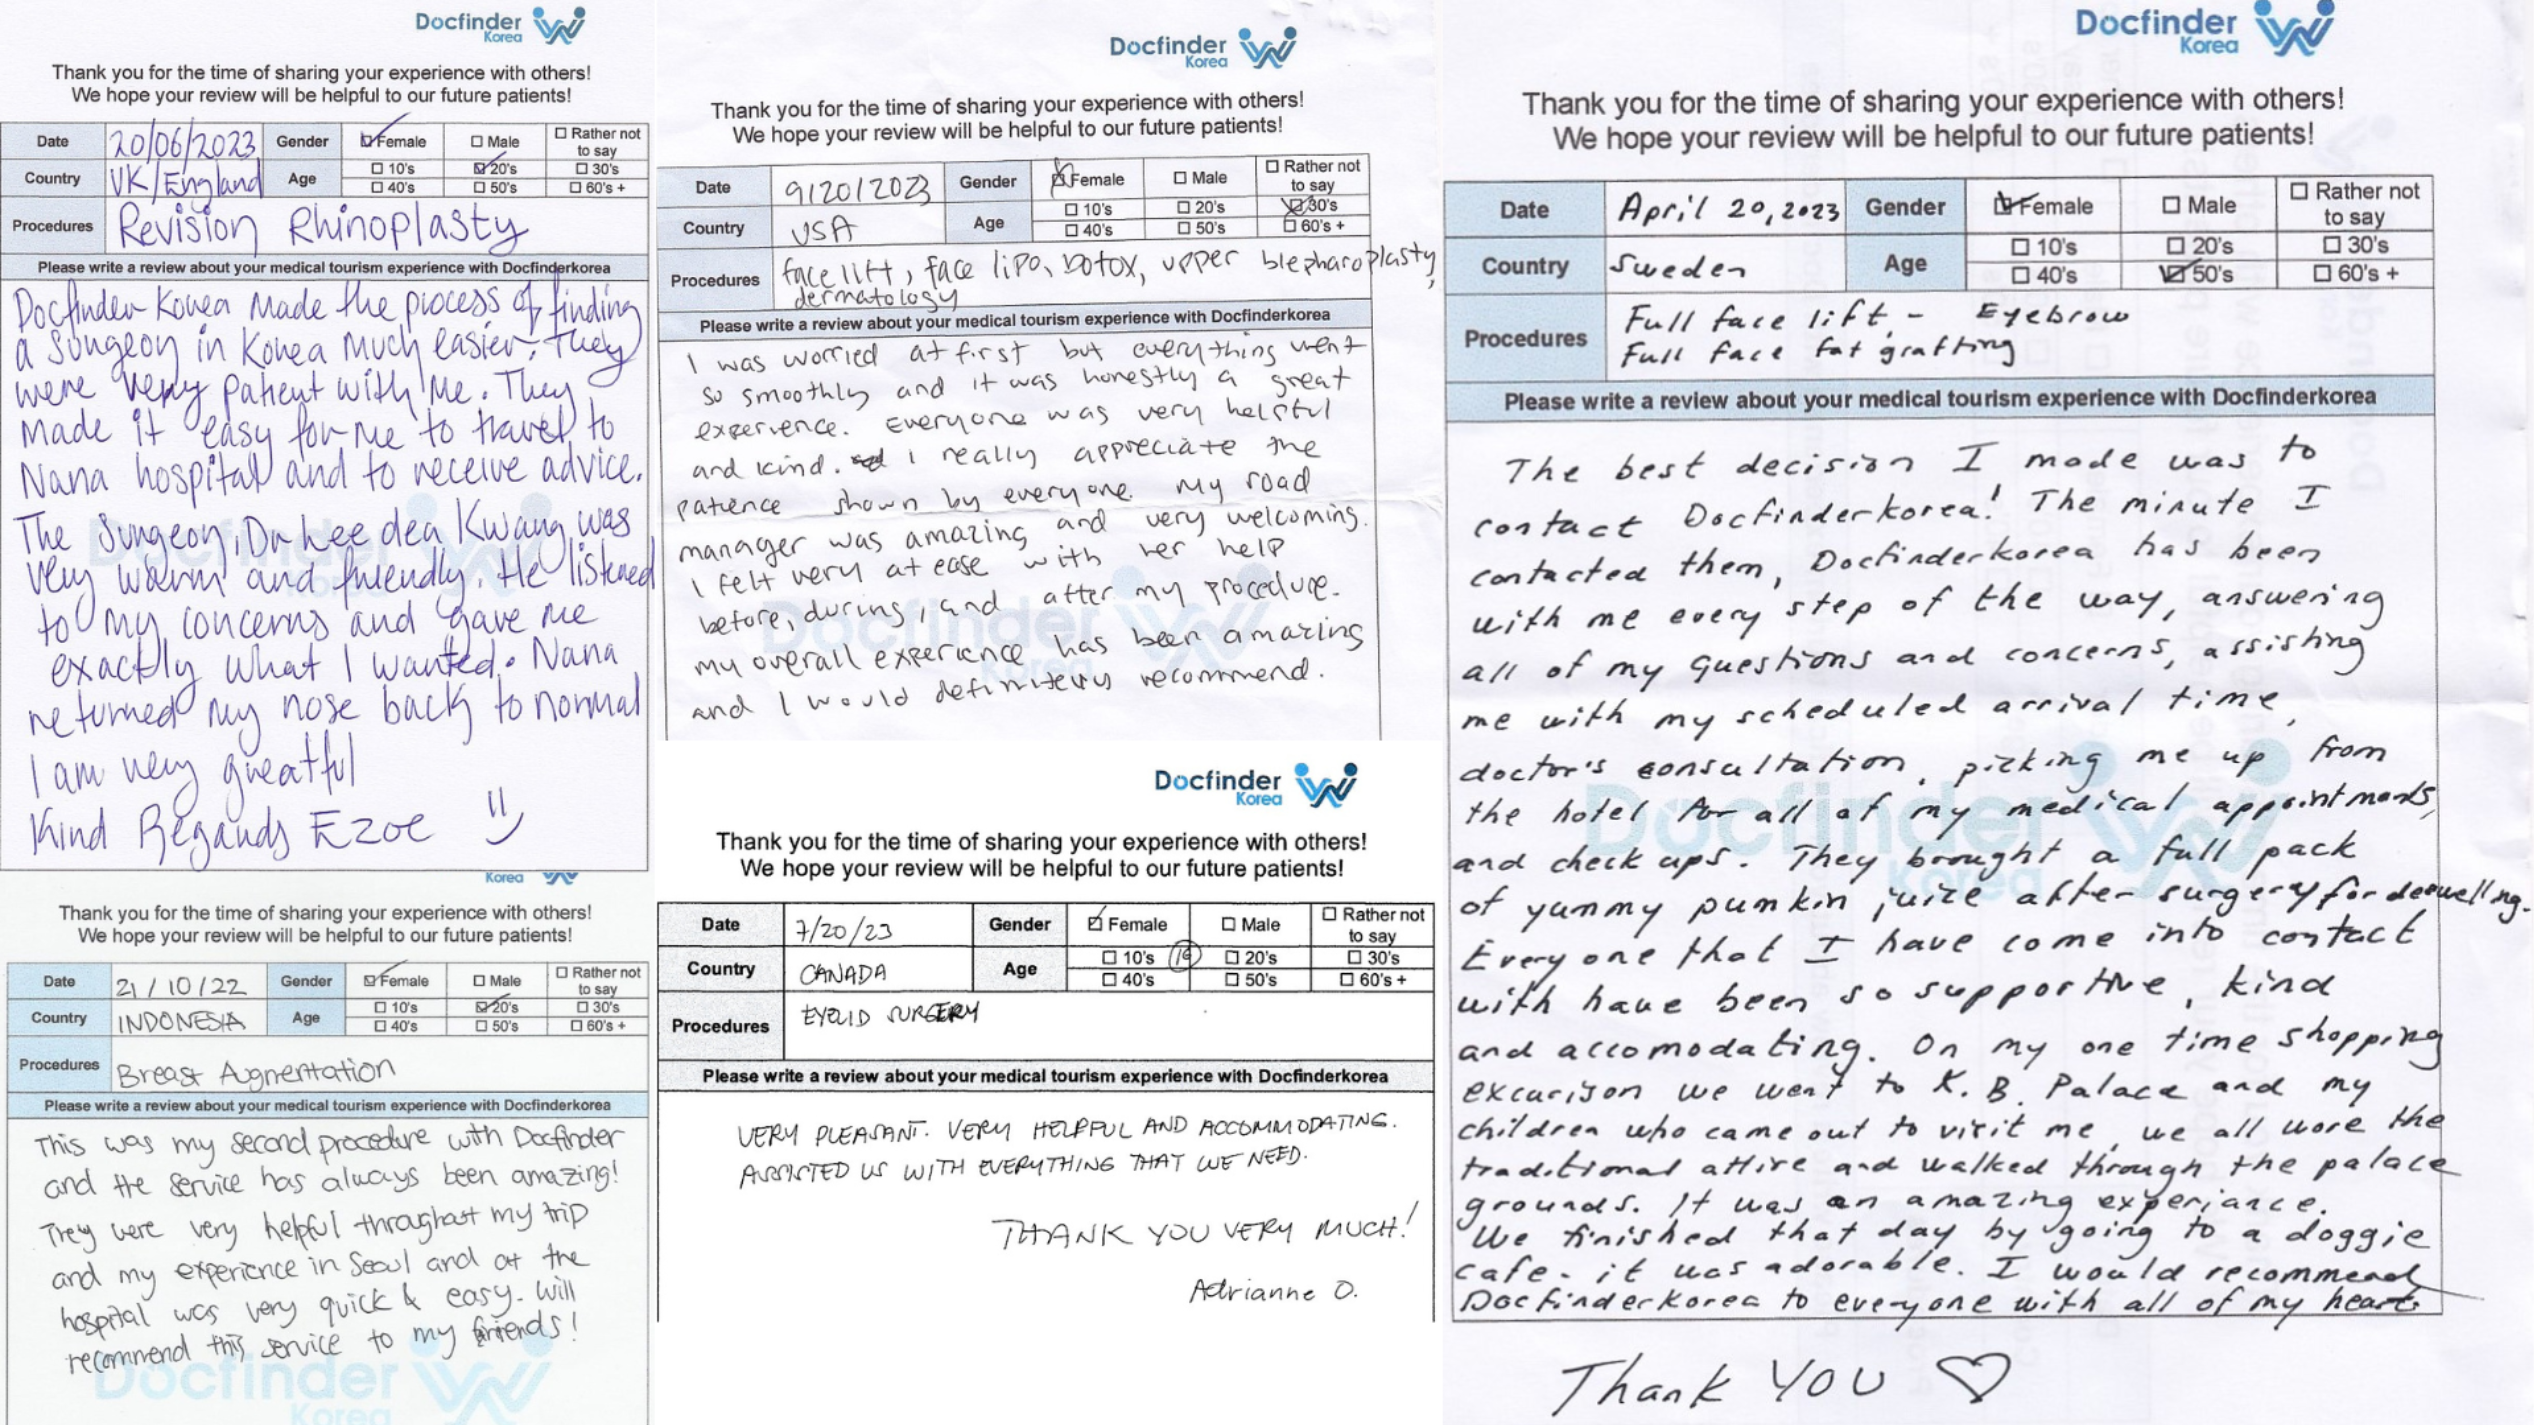 Docfinder
Korea
Thank you for the time of sharing your experience with others!
We hope your review will be helpful to our future patients!
Date 20/06/2023 Gender ☑ Female ☐ Male ☐ Rather not to say
Country UK/England Age ☐ 10's ☑ 20's ☐ 30's
☐ 40's ☐ 50's ☐ 60's +
Procedures Revision Rhinoplasty
Please write a review about your medical tourism experience with Docfinderkorea
Docfinder Korea Made the process of finding
a Surgeon in Korea much easier. They
were very patient with Me. They
made it easy for me to travel to
Nana hospital and to receive advice.
The Surgeon, Dr Lee dea Kwang was
very warm and friendly. He listened
to my concerns and gave me
exactly what I wanted. Nana
returned my nose back to normal
I am very greatful
Kind Regards Ezoe
Korea
Thank you for the time of sharing your experience with others!
We hope your review will be helpful to our future patients!
Date 21/10/22 Gender ☑ Female ☐ Male ☐ Rather not to say
Country INDONESIA Age ☐ 10's ☑ 20's ☐ 30's
☐ 40's ☐ 50's ☐ 60's +
Procedures Breast Augmentation
Please write a review about your medical tourism experience with Docfinderkorea
This was my second procedure with Docfinder
and the service has always been amazing!
They were very helpful throughout my trip
and my experience in Seoul and at the
hospital was very quick & easy. Will
recommend this service to my friends!
Docfinder
Korea
Docfinder
Korea
Thank you for the time of sharing your experience with others!
We hope your review will be helpful to our future patients!
Date 9/20/2023 Gender ☑ Female ☐ Male ☐ Rather not to say
Country USA Age ☐ 10's ☐ 20's ☑ 30's
☐ 40's ☐ 50's ☐ 60's +
Procedures face lift, face lipo, botox, upper blepharoplasty,
dermatology
Please write a review about your medical tourism experience with Docfinderkorea
I was worried at first but everything went
so smoothly and it was honestly a great
experience. Everyone was very helpful
and kind. I really appreciate the
patience shown by everyone. My road
manager was amazing and very welcoming.
I felt very at ease with her help
before, during, and after my procedure.
my overall experience has been amazing
and I would definitely recommend.
Docfinder
Korea
Thank you for the time of sharing your experience with others!
We hope your review will be helpful to our future patients!
Date 7/20/23 Gender ☑ Female ☐ Male ☐ Rather not to say
Country CANADA Age ☐ 10's ☐ 20's ☐ 30's
☐ 40's ☐ 50's ☐ 60's +
Procedures EYELID SURGERY
Please write a review about your medical tourism experience with Docfinderkorea
VERY PLEASANT. VERY HELPFUL AND ACCOMMODATING.
ASSISTED US WITH EVERYTHING THAT WE NEED.
THANK YOU VERY MUCH!
Adrianne O.
Docfinder
Korea
Thank you for the time of sharing your experience with others!
We hope your review will be helpful to our future patients!
Date April 20, 2023 Gender ☑ Female ☐ Male ☐ Rather not to say
Country Sweden Age ☐ 10's ☐ 20's ☐ 30's
☐ 40's ☑ 50's ☐ 60's +
Procedures Full face lift - Eyebrow
Full face fat grafting
Please write a review about your medical tourism experience with Docfinderkorea
The best decision I made was to
contact Docfinderkorea! The minute I
contacted them, Docfinderkorea has been
with me every step of the way, answering
all of my questions and concerns, assisting
me with my scheduled arrival time,
doctor's consultation, picking me up from
the hotel for all of my medical appointments,
and check ups. They brought a full pack
of yummy pumkin juice after surgery for deswelling.
Everyone that I have come into contact
with have been so supportive, kind
and accomodating. On my one time shopping
excurison we went to K.B. Palace and my
children who came out to visit me, we all wore the
traditional attire and walked through the palace
grounds. It was an amazing experiance.
We finished that day by going to a doggie
cafe - it was adorable. I would recommend
Docfinderkorea to everyone with all of my heart.
Thank YOU ♡